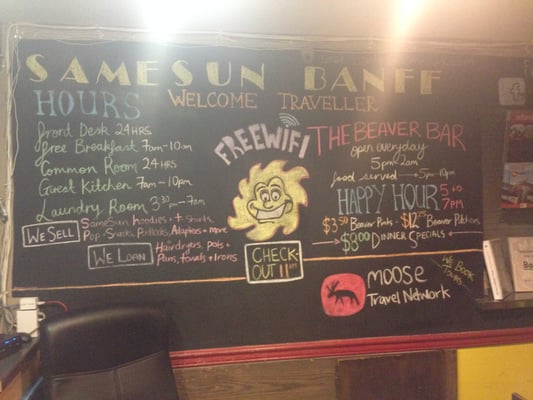 SAMESUN BANFF
HOURS
WELCOME TRAVELLER
front Desk 24HRS
free Breakfast 7am-10am
Common Room 24HRS
Guest Kitchen 7am-10pm
Laundry Room
FREE WIFI
THE BEAVER BAR
open everyday
5pm-2am
food served 5pm-10pm
HAPPY HOUR
$3.50 Beaver Pints - Beaver Pitchers
$8.00 DINNER SPECIALS
WE SELL
SameSun hoodies + t-shirts,
Pop, Snacks, Padlocks, Adapters + more
WE LOAN
Hairdryers, Pots +
Pans, towels + Irons
CHECK-
OUT 11am
MOOSE
Travel Network
WE BOOK
TOURS